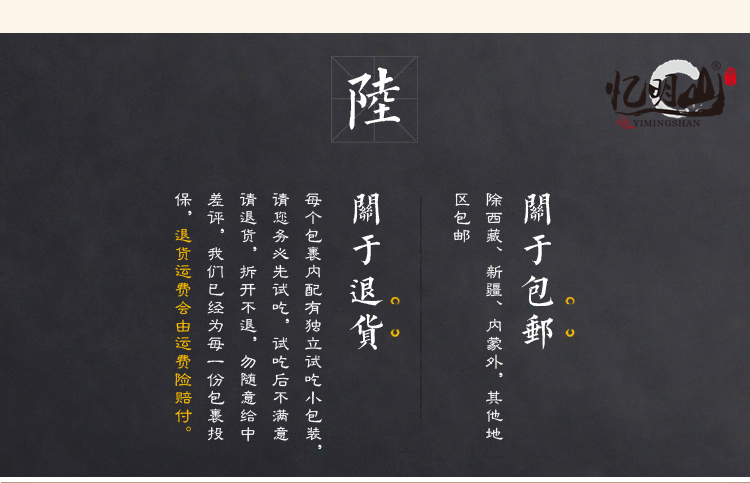 陸
忆明山®
YIMINGSHAN
關于包郵
除西藏、新疆、内蒙外，其他地
区包邮
關于退貨
每个包裹内配有独立试吃小包装，
请您务必先试吃，试吃后不满意
请退货，拆开不退，勿随意给中
差评，我们已经为每一份包裹投
保，退货运费会由运费险赔付。